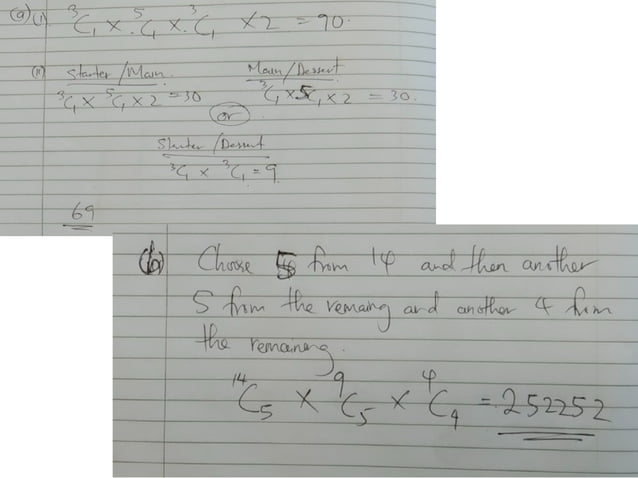 (a)(i) ³C₁ × ⁵C₁ × ³C₁ × 2 = 90.
(ii) Starter/Main. Main/Dessert
³C₁ × ⁵C₁ × 2 = 30 ³C₁ × 5C₁ × 2 = 30.
or
Starter/Dessert
³C₁ × ³C₁ = 9
69
(b) Choose 5 from 14 and then another
5 from the remaing and another 4 from
the remaining.
¹⁴C₅ × ⁹C₅ × ⁴C₄ = 252252